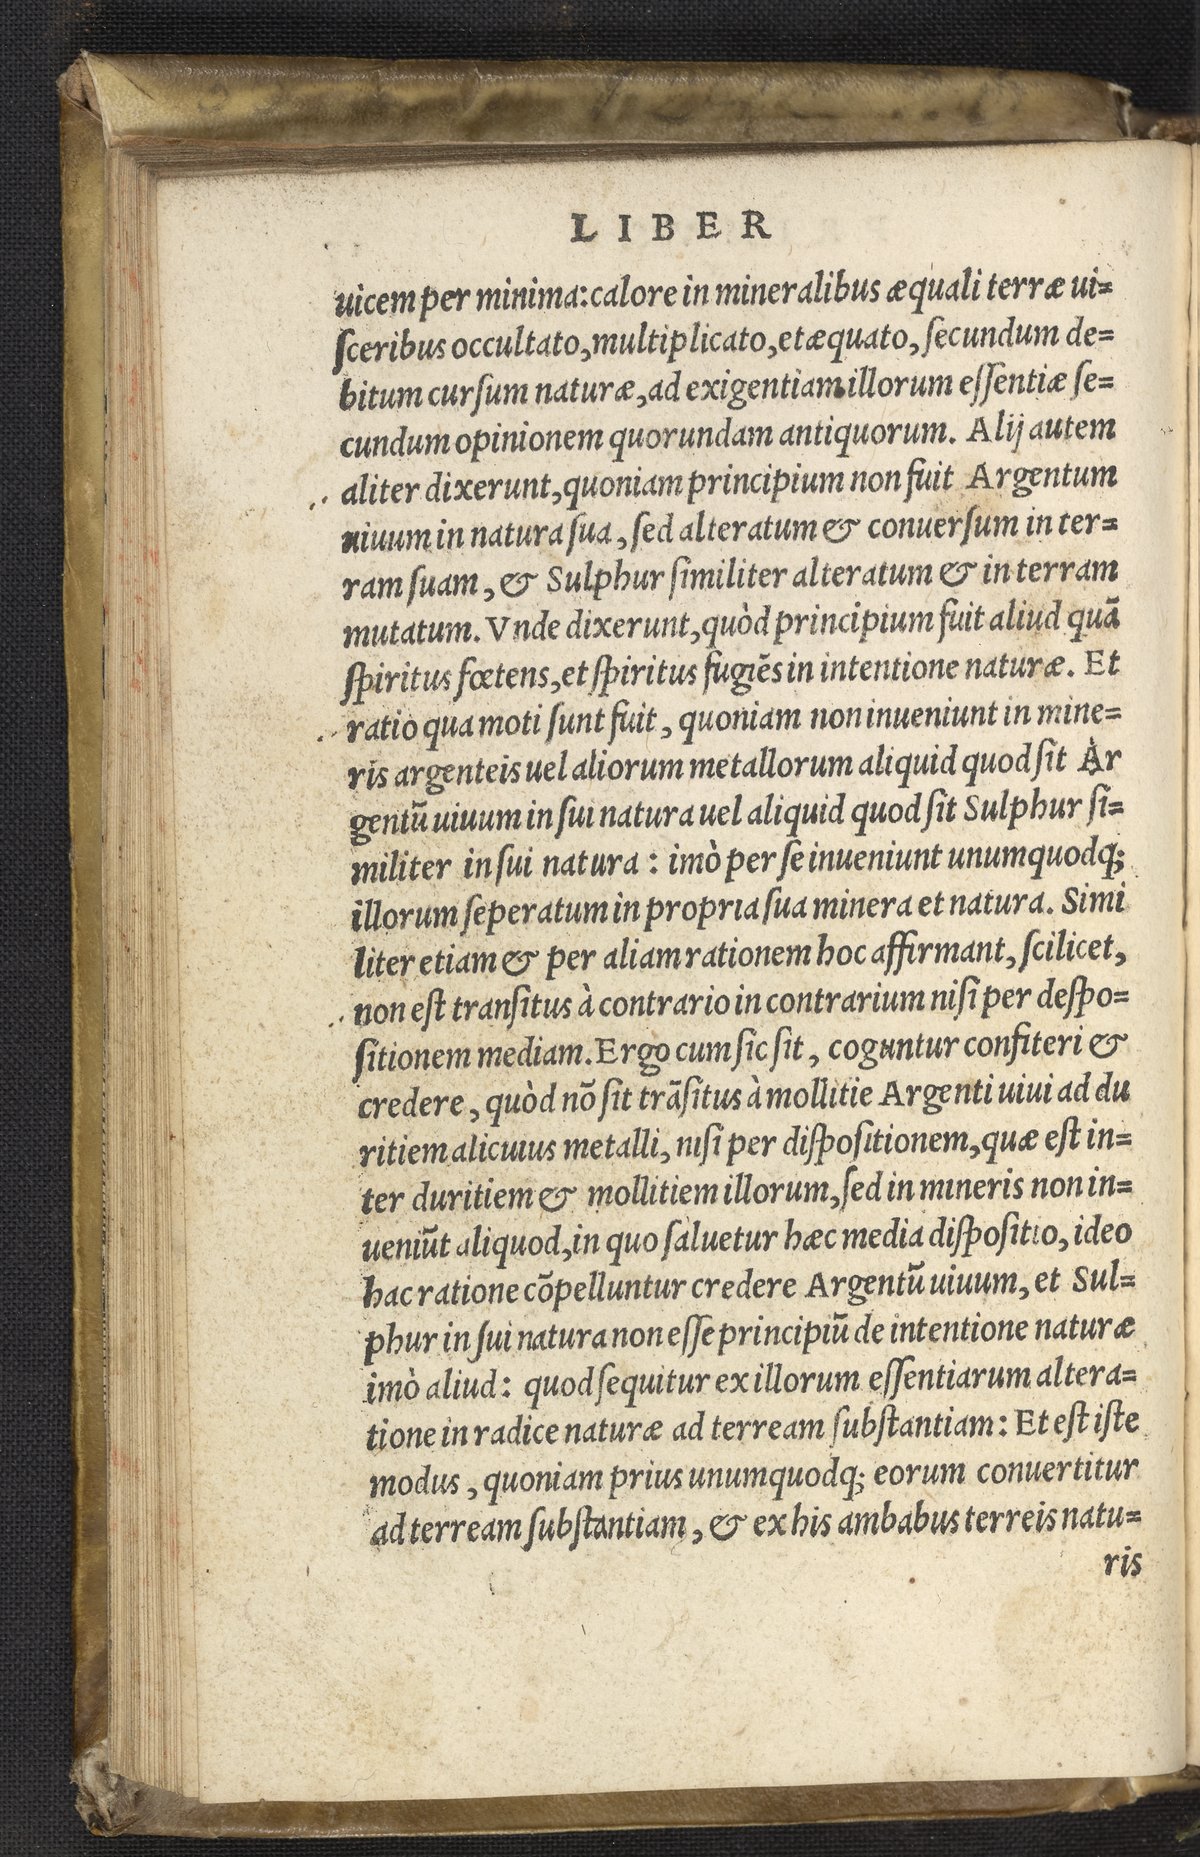 LIBER
uicem per minima: calore in mineralibus æquali terræ ui=
ſceribus occultato, multiplicato, et æquato, ſecundum de=
bitum curſum naturæ, ad exigentiam illorum eſſentiæ ſe=
cundum opinionem quorundam antiquorum. Alij autem
aliter dixerunt, quoniam principium non fuit Argentum
uiuum in natura ſua, ſed alteratum & conuerſum in ter=
ram ſuam, & Sulphur ſimiliter alteratum & in terram
mutatum. Vnde dixerunt, quòd principium fuit aliud quã
ſpiritus fœtens, et ſpiritus fugiẽs in intentione naturæ. Et
ratio qua moti ſunt fuit, quoniam non inueniunt in mine=
ris argenteis uel aliorum metallorum aliquid quod ſit Ar
gentũ uiuum in ſui natura uel aliquid quod ſit Sulphur ſi=
militer in ſui natura : imò per ſe inueniunt unumquodq;
illorum ſeperatum in propria ſua minera et natura. Simi
liter etiam & per aliam rationem hoc affirmant, ſcilicet,
non eſt tranſitus à contrario in contrarium niſi per deſpo=
ſitionem mediam. Ergo cum ſic ſit, coguntur confiteri &
credere, quòd nõ ſit trãſitus à mollitie Argenti uiui ad du
ritiem alicuius metalli, niſi per diſpoſitionem, quæ eſt in=
ter duritiem & mollitiem illorum, ſed in mineris non in=
ueniũt aliquod, in quo ſaluetur hæc media diſpoſitio, ideo
hac ratione cõpelluntur credere Argentũ uiuum, et Sul=
phur in ſui natura non eſſe principiũ de intentione naturæ
imò aliud: quod ſequitur ex illorum eſſentiarum altera=
tione in radice naturæ ad terream ſubſtantiam: Et eſt iſte
modus, quoniam prius unumquodq; eorum conuertitur
ad terream ſubſtantiam, & ex his ambabus terreis natu=
ris